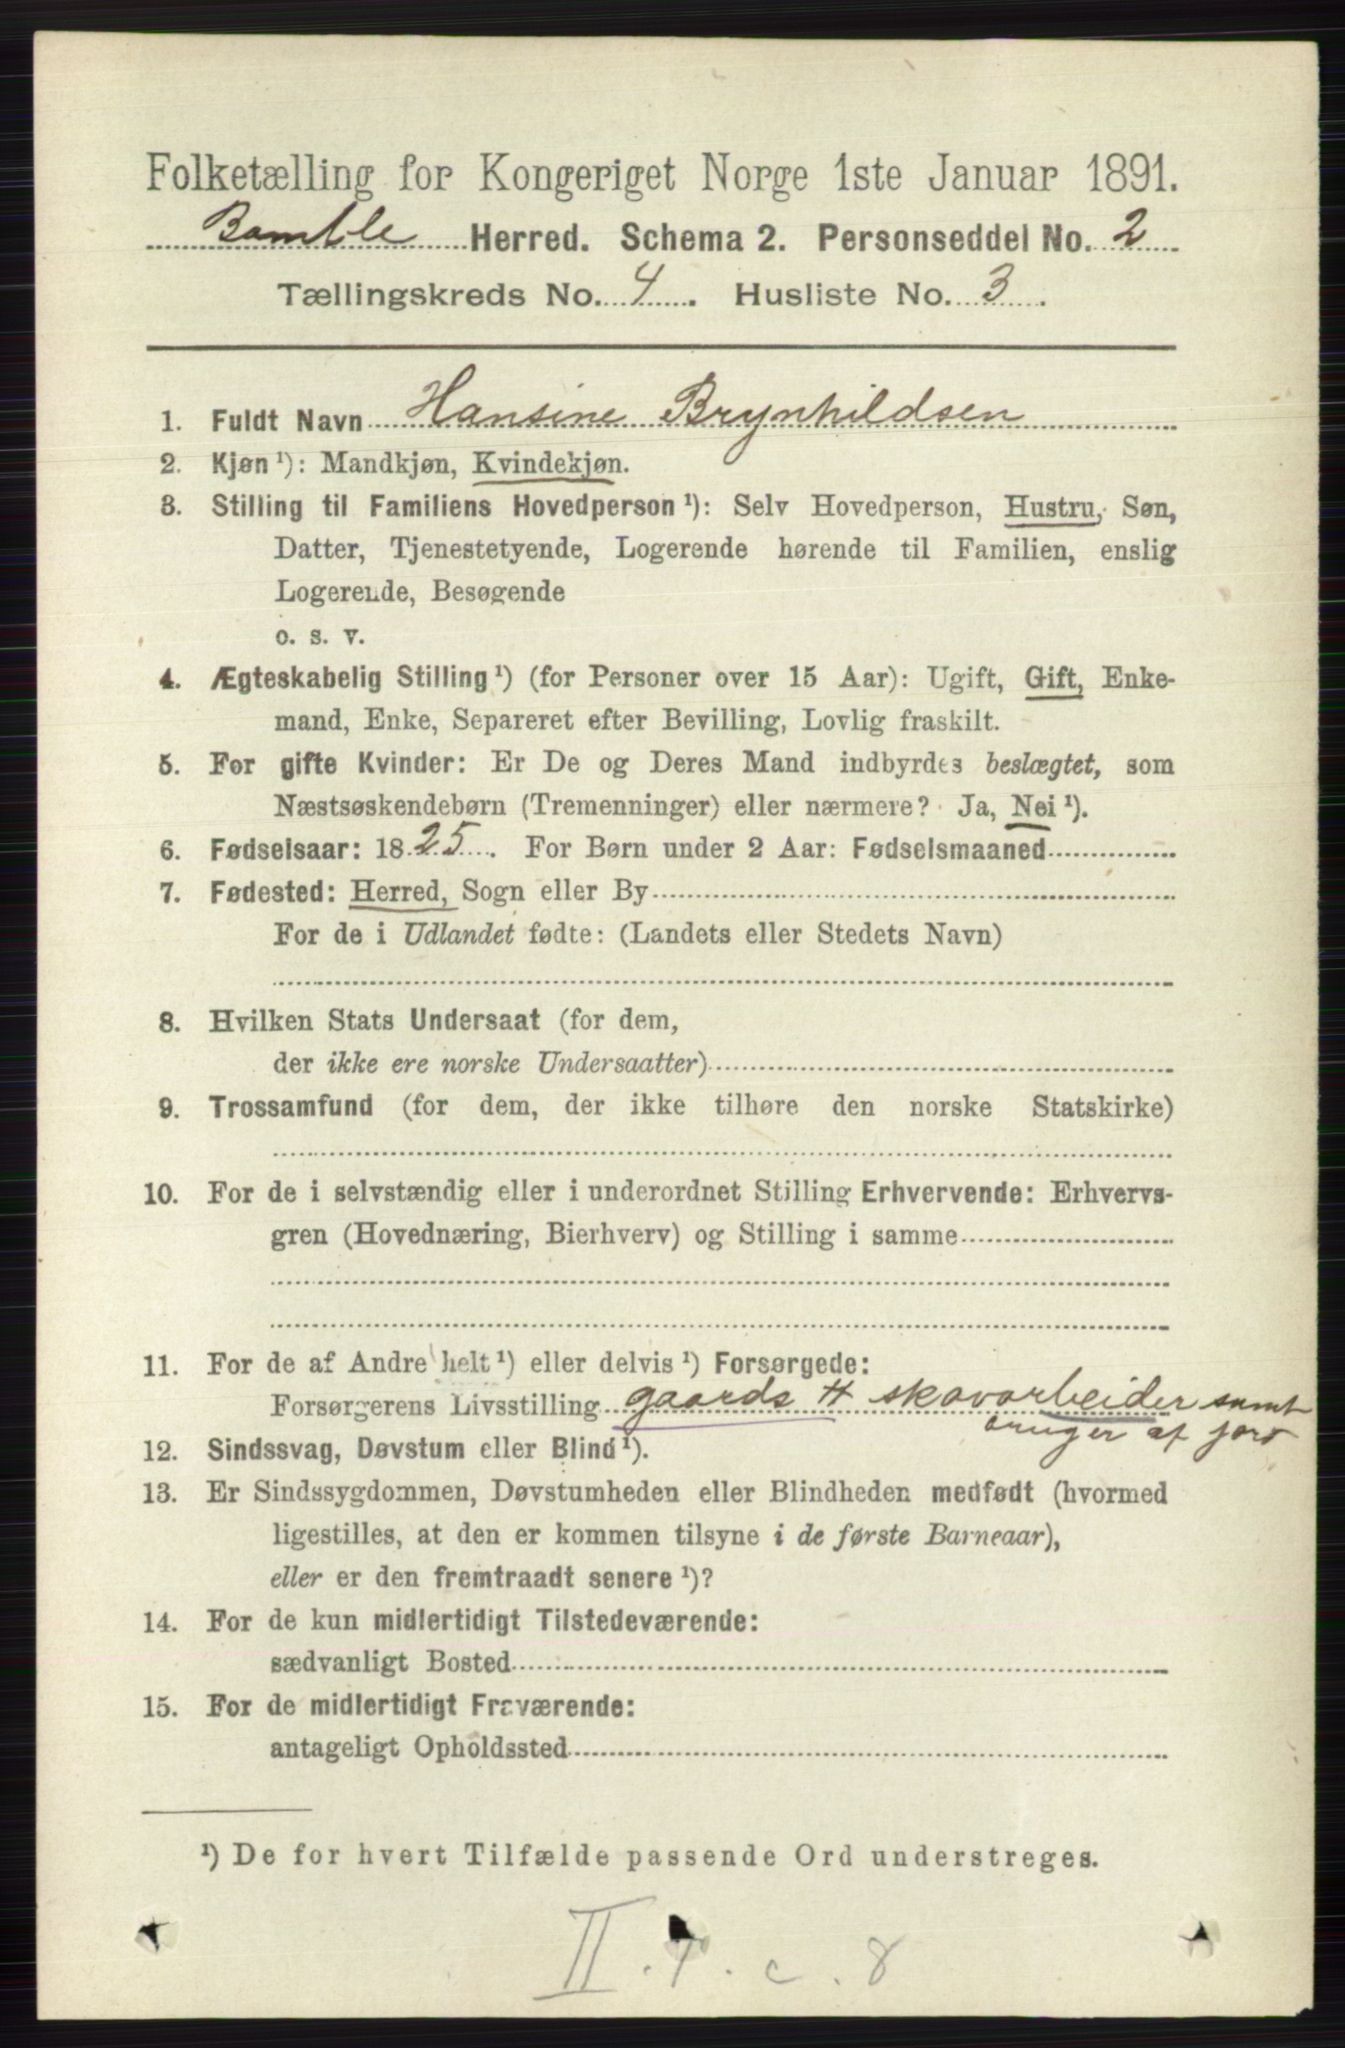 Folketælling for Kongeriget Norge 1ste Januar 1891.
Bamble Herred. Schema 2. Personseddel No. 2
Tællingskreds No. 4. Husliste No. 3.
1. Fuldt Navn Hansine Brynhildsen
2. Kjøn ¹): Mandkjøn, Kvindekjøn.
3. Stilling til Familiens Hovedperson ¹): Selv Hovedperson, Hustru, Søn,
Datter, Tjenestetyende, Logerende hørende til Familien, enslig
Logerende, Besøgende
o. s. v.
4. Ægteskabelig Stilling ¹) (for Personer over 15 Aar): Ugift, Gift, Enke-
mand, Enke, Separeret efter Bevilling, Lovlig fraskilt.
5. For gifte Kvinder: Er De og Deres Mand indbyrdes beslægtet, som
Næstsøskendebørn (Tremenninger) eller nærmere? Ja, Nei ¹).
6. Fødselsaar: 1825. For Børn under 2 Aar: Fødselsmaaned
7. Fødested: Herred, Sogn eller By
For de i Udlandet fødte: (Landets eller Stedets Navn)
8. Hvilken Stats Undersaat (for dem,
der ikke ere norske Undersaatter)
9. Trossamfund (for dem, der ikke tilhøre den norske Statskirke)
10. For de i selvstændig eller i underordnet Stilling Erhvervende: Erhvervs-
gren (Hovednæring, Bierhverv) og Stilling i samme
11. For de af Andre helt ¹) eller delvis ¹) Forsørgede:
Forsørgerens Livsstilling gaards # skovarbeider samt
bruger af jord
12. Sindssvag, Døvstum eller Blind ¹).
13. Er Sindssygdommen, Døvstumheden eller Blindheden medfødt (hvormed
ligestilles, at den er kommen tilsyne i de første Barneaar),
eller er den fremtraadt senere ¹)?
14. For de kun midlertidigt Tilstedeværende:
sædvanligt Bosted
15. For de midlertidigt Fraværende:
antageligt Opholdssted
¹) De for hvert Tilfælde passende Ord understreges.
II. 1. c. 8